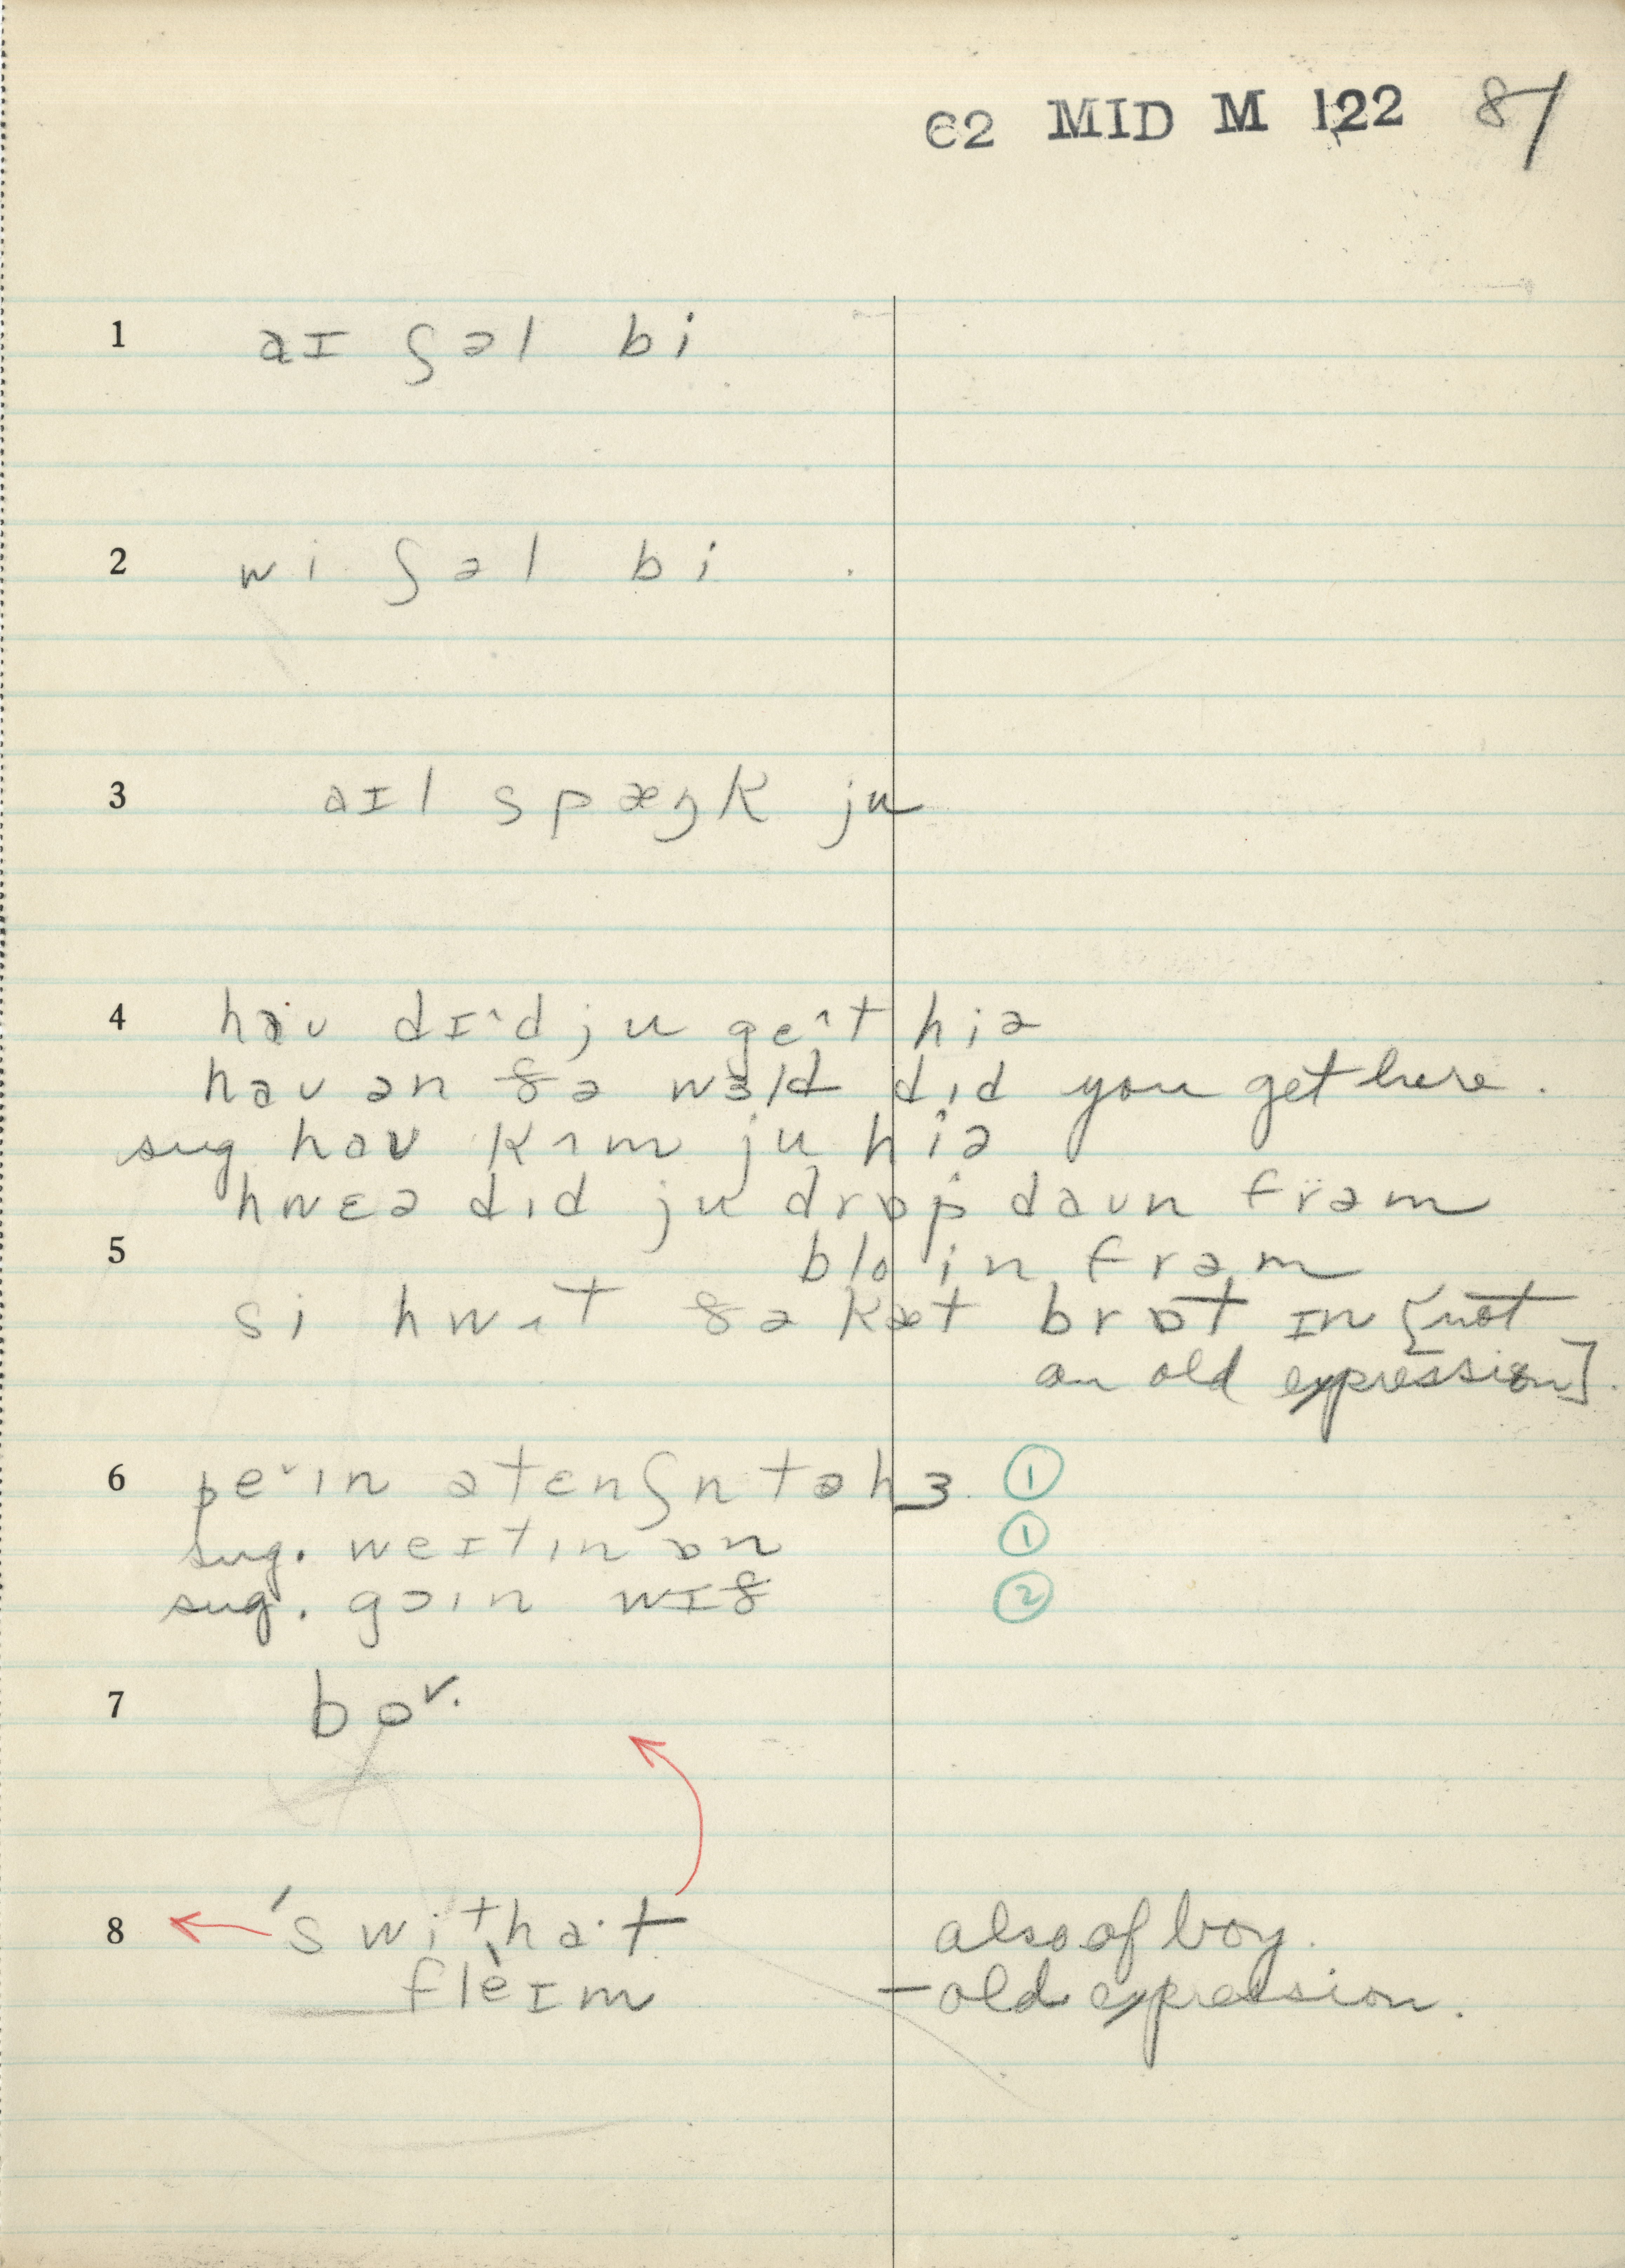 C2 MID M 122 87
1 aɪ ʃəl bi
2 wi ʃəl bi
3 aɪl spæŋk ju
4 haʊ dɪ^d ju ge^t hiə
haʊ ən ðə wɜld dɪd you get here.
sug haʊ kʌm ju hiə
hwɛə dɪd ju drɒp daʊn frəm
5 bloɪn frəm
si hwʌt ðə kæt brɒt ɪn [not
an old expression].
6 peˇɪn ətɛnʃn tə hɜ ①
sug. weɪtɪn ɒn ①
sug. goɪn wɪð ②
7 boˇ.
8 'switha·t also of boy.
fleɪm – old expression.